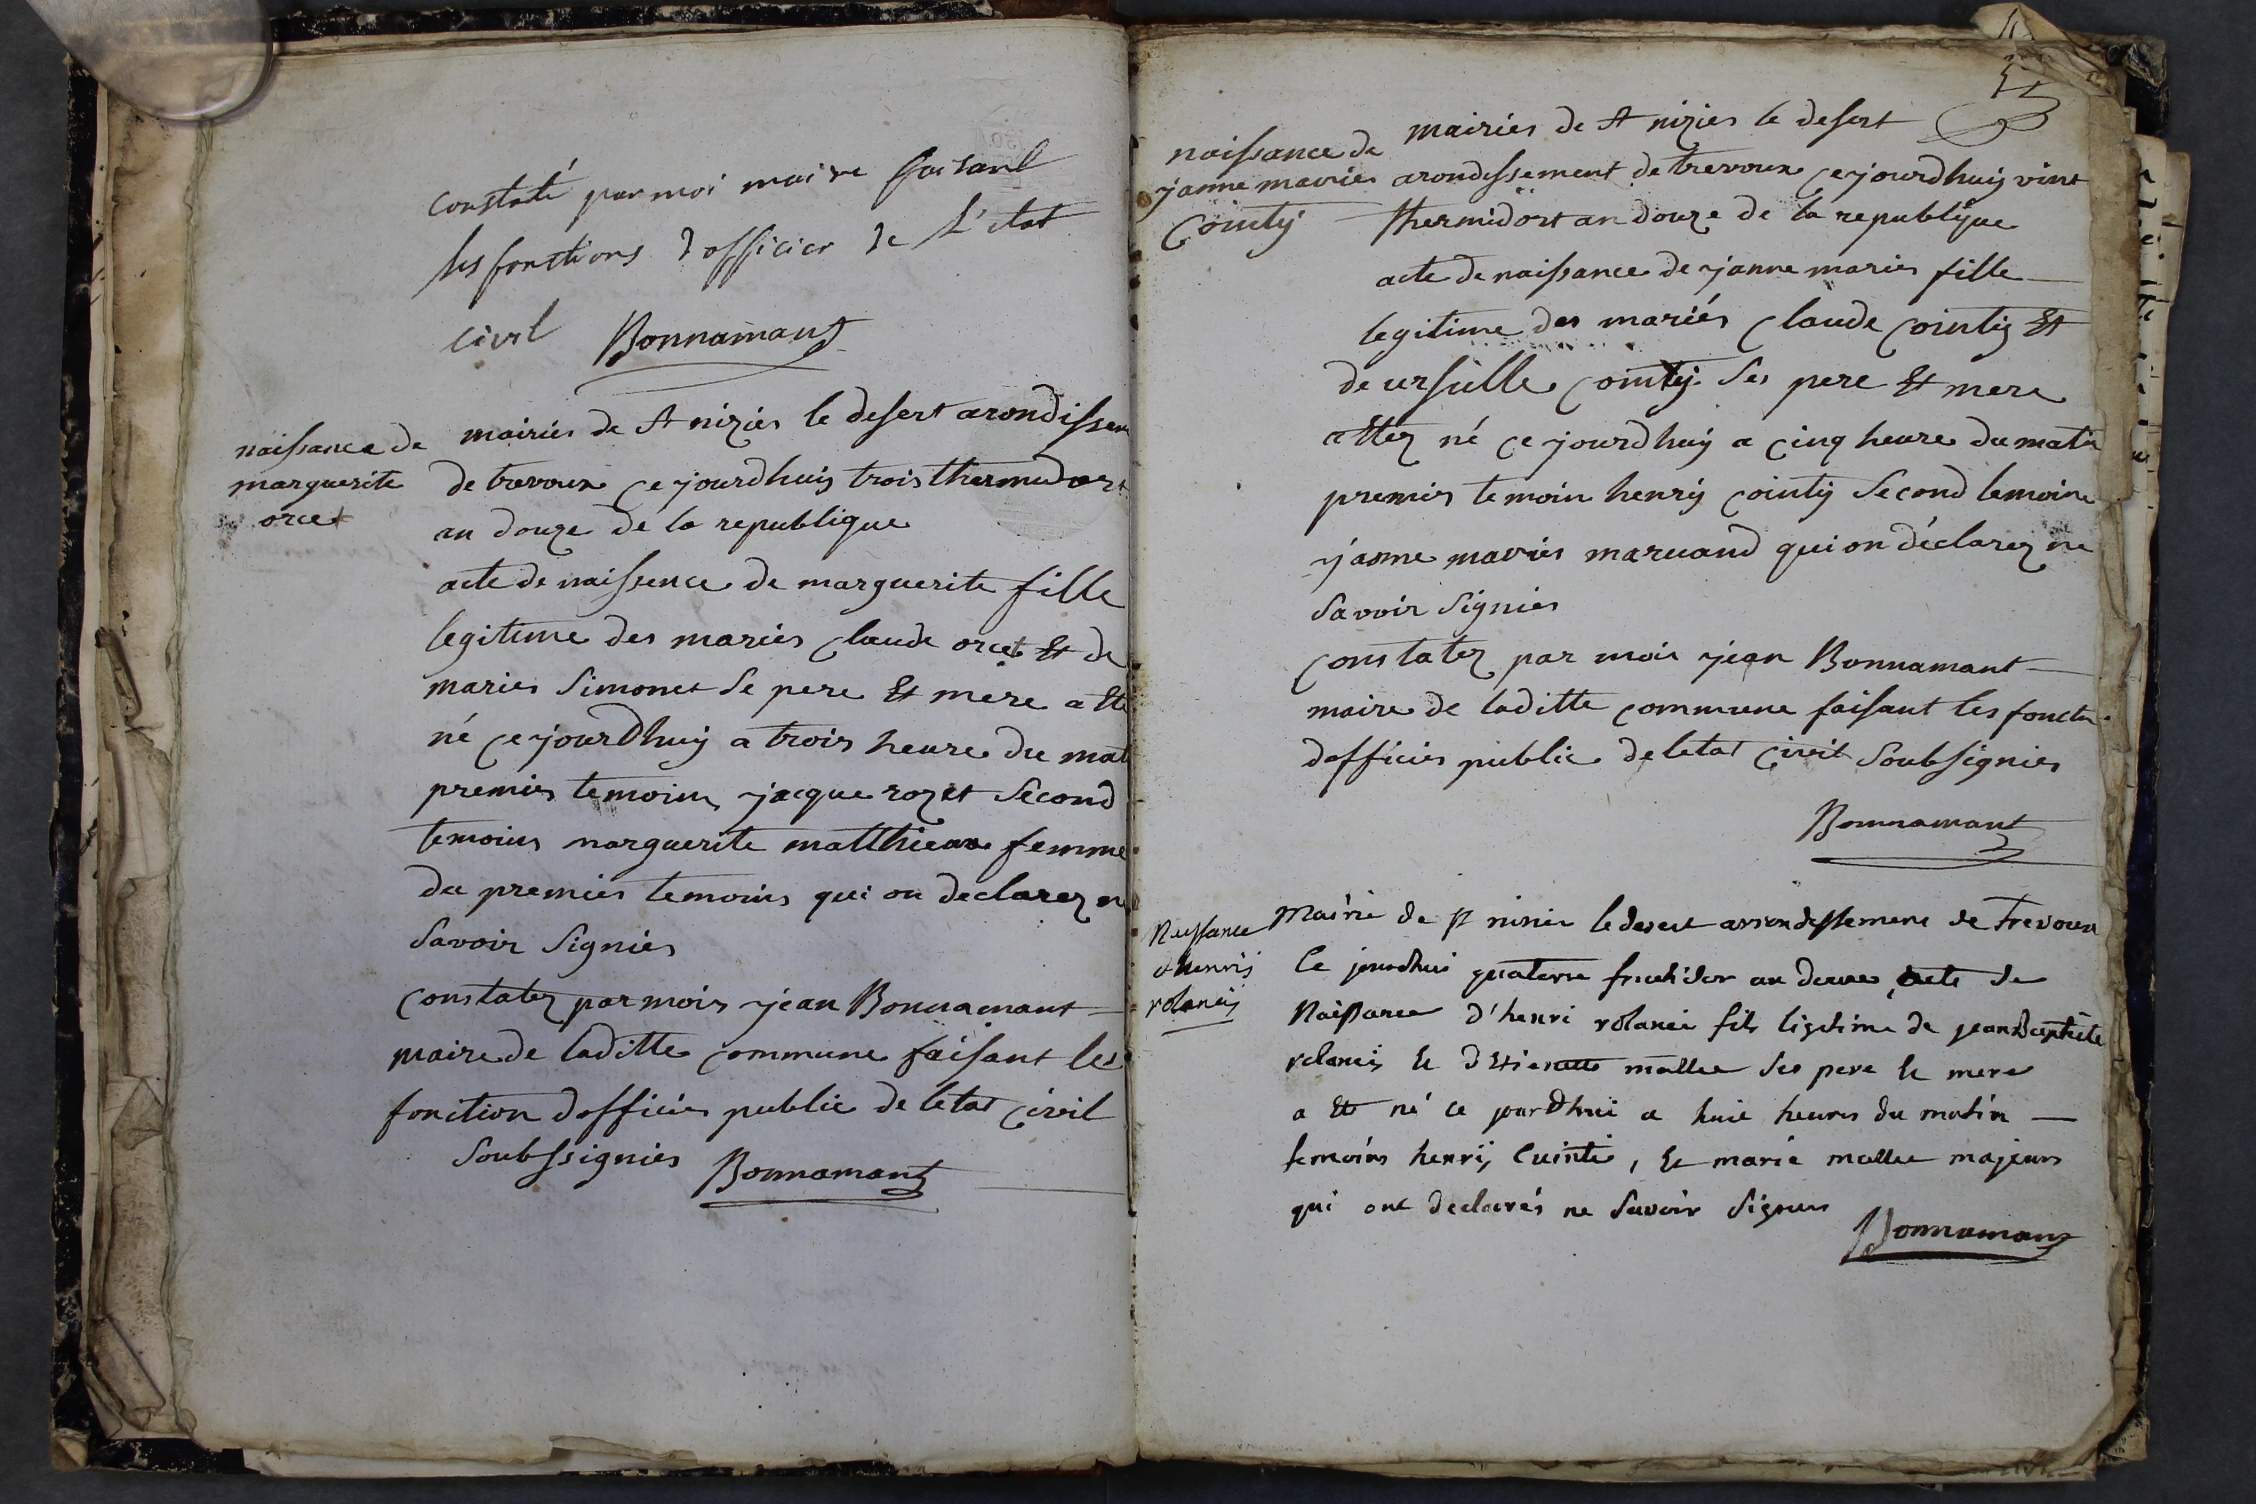 constaté par moi maire faisant
les fonctions d'officier de L'état
civil Bonnamant
naissance de
marguerite
orcet
mairies de st nizies le desert arondissem
de trevoux ce jourdhuij trois thermidort
an douze de la republique
acte de naissence de marguerite fille
legitime des mariés claude orcet et de
maries Simonet Se pere et mere a ette
né ce jourdhuij a trois heure du mat
premies temoins jacque rozet Second
temoins marguerite matthieux femme
du premies temoins qui on declarez n
Savoir Signies
constatez par mois jean Bonnamant
maire de laditte commune faisant les
fonction d'officies public de letat civil
Soubssignies Bonnamant
naissance de
janne maries
Cointij
mairies de st nizies le desert
arondissement de trevoux ce jourdhuij vint
thermidort an douze de la republique
acte de naissance de janne maries fille
legitime des mariés claude Cointij et
de ursulle Cointij Ses pere et mere
a ettez né ce jourdhuij a cinq heure du matin
premies temoin henrij Cointij Second temoin
janne maries maruand qui on déclarez ne
Savoir Signies
constatez par mois jean Bonnamant
maire de laditte commune faisant les fonctn
d'officies public de letat civil Soubsignies
Bonnamant
Naissance
d'henrij
rolanij
Mairie de st nisier le desert arrondissement de Trevoux
Ce jourdhui quatorse fructidor an douse, acte de
Naissance d'henri rolanei fils ligitime de jean Baptiste
rolanij et d'Etienette mallet ses pere et mere
a ete né ce jourdhui a huit heures du matin
temoins henrij Cuinti, et marie mallet majeurs
qui ont declarés ne Savoir Signer
Bonnamant